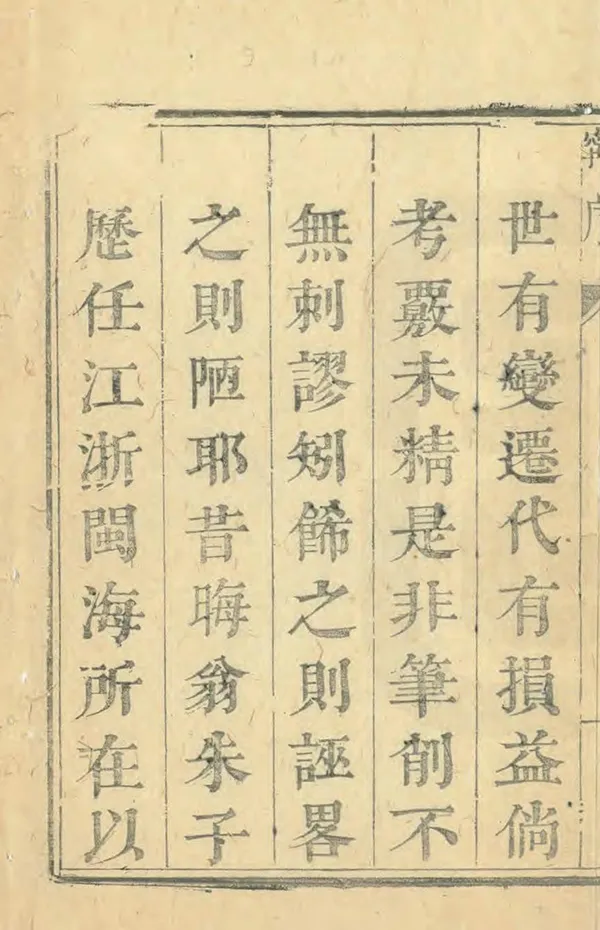 世有變遷代有損益倘
考覈未精是非筆削不
無刺謬矧餙之則誣畧
之則陋耶昔晦翁朱子
歷任江浙閩海所在以